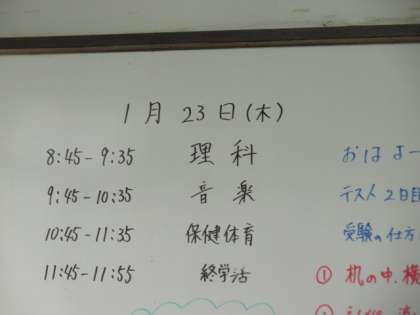 1月 23日(木)
8:45-9:35 理科 おはよー
9:45-10:35 音楽 テスト2日目
10:45-11:35 保健体育 受験の仕方
11:45-11:55 終学活 ① 机の中、横